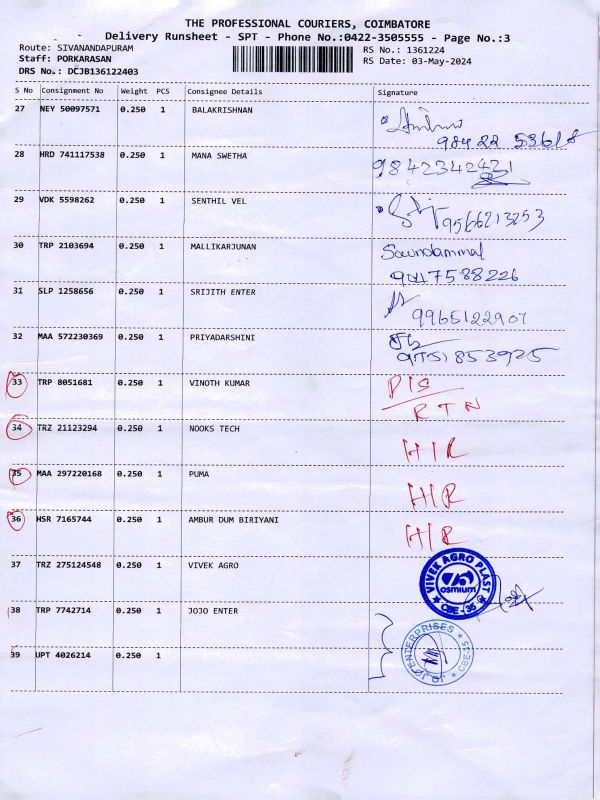 THE PROFESSIONAL COURIERS, COIMBATORE
Delivery Runsheet - SPT - Phone No.:0422-3505555 - Page No.:3
Route: SIVANANDAPURAM RS No.: 1361224
Staff: PORKARASAN RS Date: 03-May-2024
DRS No.: DCJB136122403
S No Consignment No Weight PCS Consignee Details Signature
27 NEY 50097571 0.250 1 BALAKRISHNAN
28 HRD 741117538 0.250 1 MANA SWETHA 9842342421
29 VDK 5598262 0.250 1 SENTHIL VEL 9566213253
30 TRP 2103694 0.250 1 MALLIKARJUNAN Soundammal
31 SLP 1258656 0.250 1 SRIJITH ENTER 9965122907
32 MAA 572230369 0.250 1 PRIYADARSHINI
33 TRP 8051681 0.250 1 VINOTH KUMAR P/S
RTN
34 TRZ 21123294 0.250 1 NOOKS TECH H/R
35 MAA 297220168 0.250 1 PUMA H/R
36 HSR 7165744 0.250 1 AMBUR DUM BIRIYANI H/R
37 TRZ 275124548 0.250 1 VIVEK AGRO
VIVEK AGRO PLAST
osmium
CBE-35
38 TRP 7742714 0.250 1 JOJO ENTER
JO JO ENTERPRISES
CBE-35
39 UPT 4026214 0.250 1